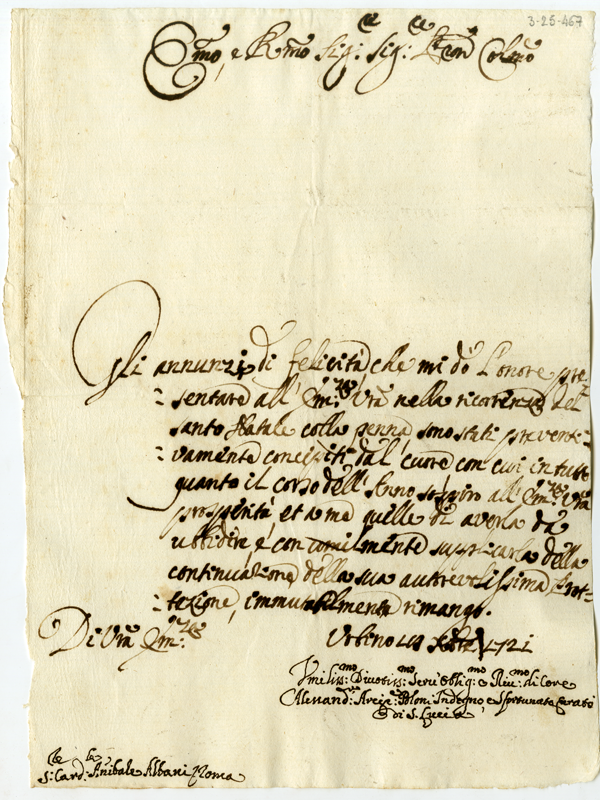 3-25-467
Em̃o, e R̃mo Sig.re Sig.re P̃ron Col̃mo
Gli annunzi di felicità che mi dò l'onore pre=
=sentare all' Em.za Vrã nella ricorrenza del
santo Natale colla penna, sono stati preventi=
=vamente concepiti dal cuore con cui in tutto
quanto il corso dell' Anno sospiro all' Em.za Vrã
prosperità, et a me quelle di averla dà
ubbidire, e con umilmente supplicarla della
continuazione della sua autorevolissima Prot=
=tezione, immutabilmente rimango.
Di Vrã Em.za
Urbino 1721
Umiliss.mo Divotiss.mo Serv Oblig.mo e Riv.mo di Core
Indegno, e Sfortunato Curato
di S. Lucia
S: Card.le Anibale Albani Roma